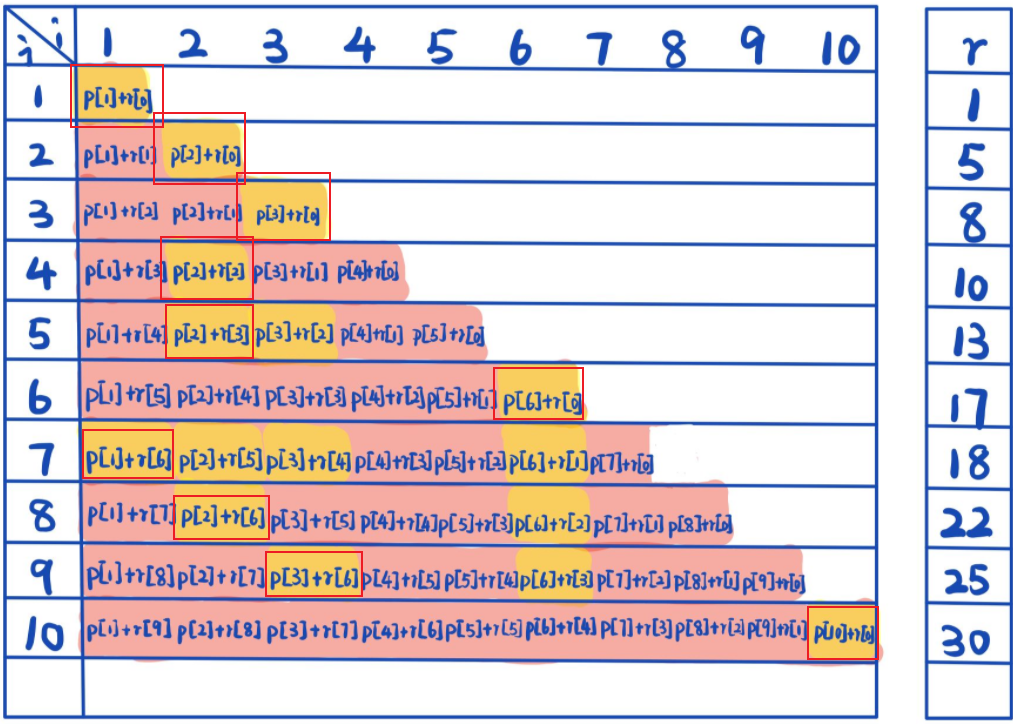 j i 1 2 3 4 5 6 7 8 9 10 r
1 p[1]+r[0] 1
2 p[1]+r[1] p[2]+r[0] 5
3 p[1]+r[2] p[2]+r[1] p[3]+r[0] 8
4 p[1]+r[3] p[2]+r[2] p[3]+r[1] p[4]+r[0] 10
5 p[1]+r[4] p[2]+r[3] p[3]+r[2] p[4]+r[1] p[5]+r[0] 13
6 p[1]+r[5] p[2]+r[4] p[3]+r[3] p[4]+r[2] p[5]+r[1] p[6]+r[0] 17
7 p[1]+r[6] p[2]+r[5] p[3]+r[4] p[4]+r[3] p[5]+r[2] p[6]+r[1] p[7]+r[0] 18
8 p[1]+r[7] p[2]+r[6] p[3]+r[5] p[4]+r[4] p[5]+r[3] p[6]+r[2] p[7]+r[1] p[8]+r[0] 22
9 p[1]+r[8] p[2]+r[7] p[3]+r[6] p[4]+r[5] p[5]+r[4] p[6]+r[3] p[7]+r[2] p[8]+r[1] p[9]+r[0] 25
10 p[1]+r[9] p[2]+r[8] p[3]+r[7] p[4]+r[6] p[5]+r[5] p[6]+r[4] p[7]+r[3] p[8]+r[2] p[9]+r[1] p[10]+r[0] 30